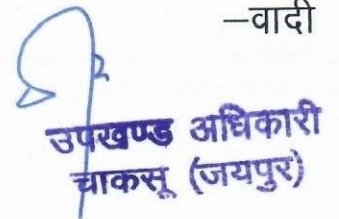 –वादी
उपखण्ड अधिकारी
चाकसू (जयपुर)